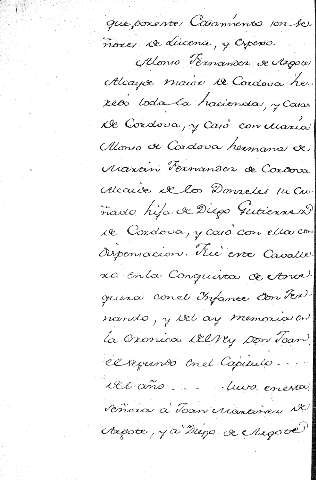 que ponente Casamiento son Se-
ñores de Lucena, y Espejo.
Alonso Fernandez de Argote
Alcayde maior de Cordova he-
redó toda la hacienda, y Casa
de Cordova, y Casó con María
Alonso de Cordova hermana de
Martin Fernandez de Cordova
Alcaide de los Donzeles su Cu-
ñado hija de Diego Gutierrez
de Cordova, y casó con ella con
dispensacion. Fué este Cavalle-
ro en la Conquista de Ante-
quera con el Infante Don Fer-
nando, y del ay memoria en
la Cronica del Rey Don Joan
el segundo en el Capitulo ....
del año .... tuvo en esta
Señora á Joan Martinez de
Argote, y á Diego de Argote